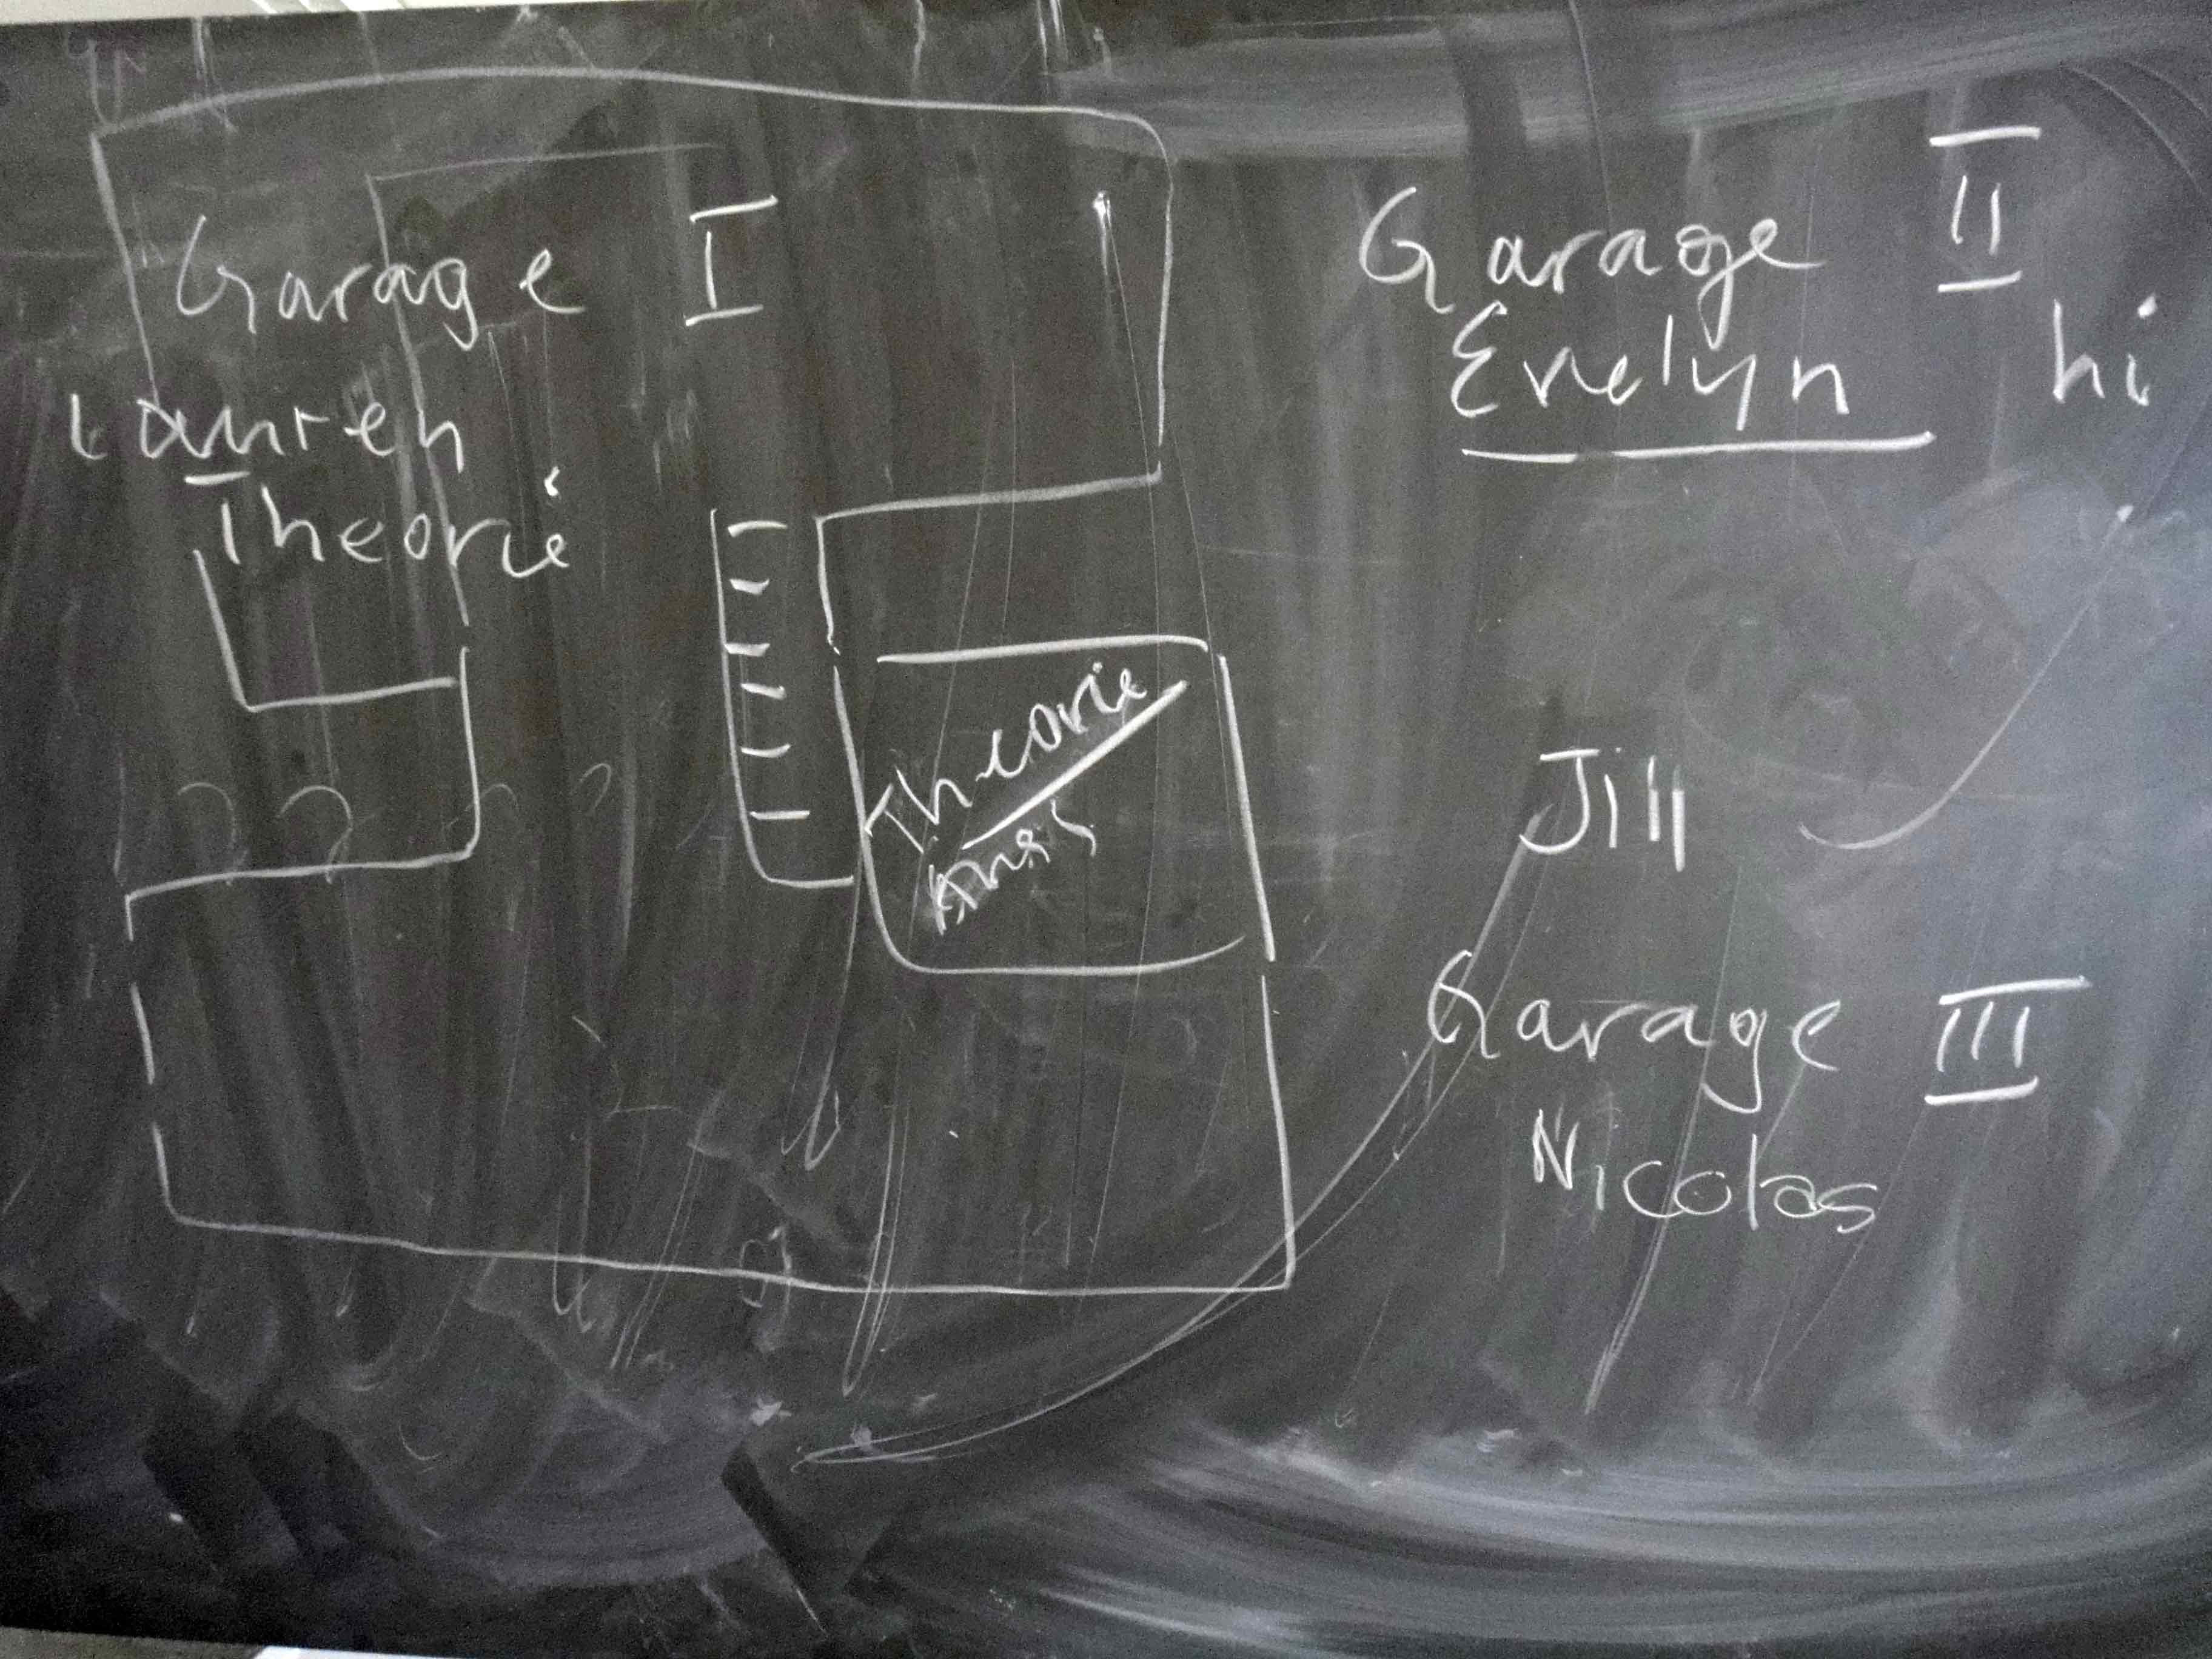 Garage I
Lauren
Theorie
Theorie
Garage II
Evelyn hi
Jill
Garage III
Nicolas